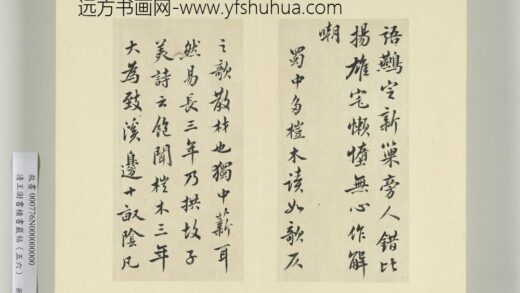 远方书画网-www.yfshuhua.com
語鷰定新巢旁人錯比
揚雄宅懶惰無心作解
嘲
蜀中多榿木讀如歌仄
之歌散材也獨中薪耳
然易長三年乃拱故子
美詩云飽聞榿木三年
大為致溪邊十畝陰凡
故書 000776N000000000
清王澍書積書巖帖（五六）